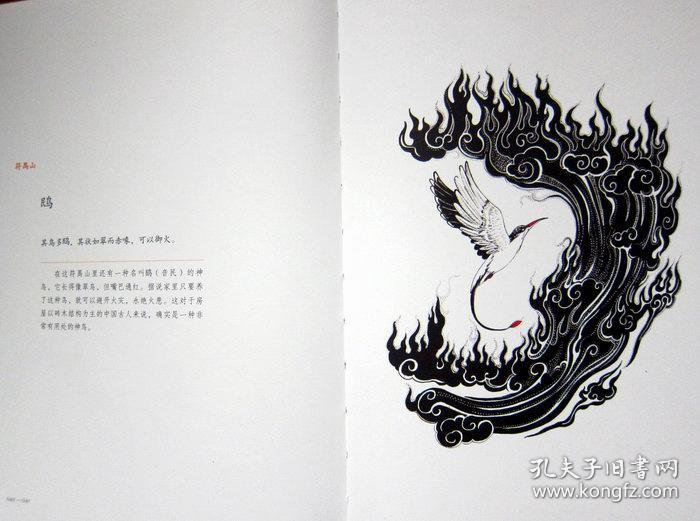 符禺山
鴖
其鸟多鴖，其状如翠而赤喙，可以御火。
在这符禺山里还有一种名叫鴖（音民）的神
鸟，它长得像翠鸟，但嘴巴通红。据说家里只要养
了这种鸟，就可以避开火灾，永绝火患。这对于房
屋以砖木结构为主的中国古人来说，确实是一种非
常有用处的神鸟。
孔夫子旧书网
www.kongfz.com